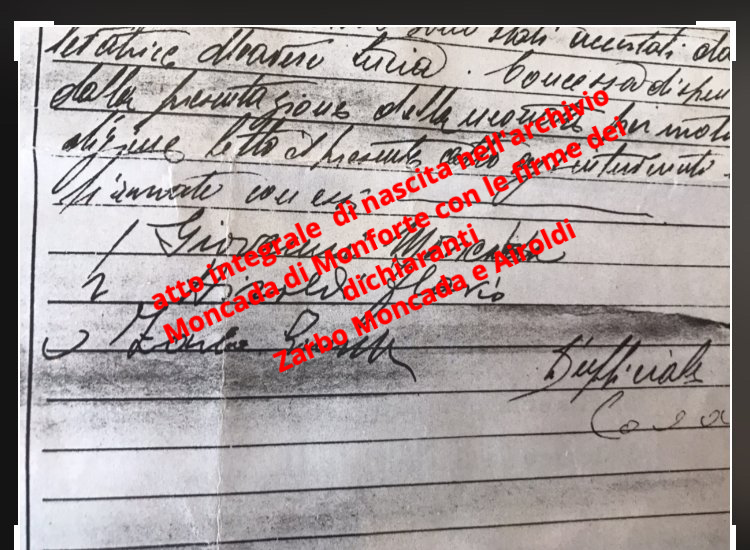 sono stati accertati da
levatrice Lucia. Concessa dispen
dalla presentazione della neonata per motivi
letto il presente atto agli intervenuti
firmato con essi
1 Giovanni Moncada
2 Airoldi
3 Zarbo
L'ufficiale
atto integrale di nascita nell'archivio
Moncada di Monforte con le firme dei
dichiaranti
Zarbo Moncada e Airoldi